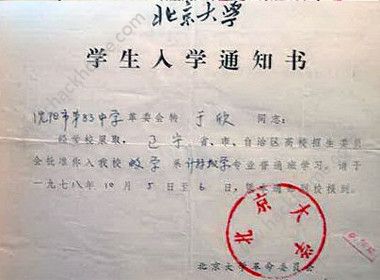 北京大学
学生入学通知书
沈阳市第83中学革委会转 于欣 同志：
经学校录取，辽宁省、市、自治区高校招生委员
会批准你入我校 数学 系 计算数学专业普通班学习。请于
一九七八年10月5日至6日，凭本通知到校报到。
北京大学
北京大学革命委员会